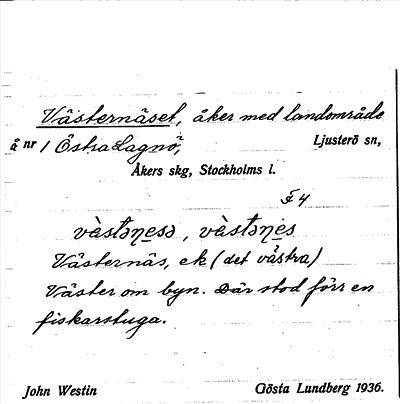 Västernäset, åker med landområde
å nr 1 Östra Lagnö, Ljusterö sn,
Åkers skg, Stockholms l.
F 4
vàstəɳesə, vàstəɳes
Västernäs, ek (det västra)
Väster om byn. Där stod förr en
fiskarstuga.
John Westin Gösta Lundberg 1936.